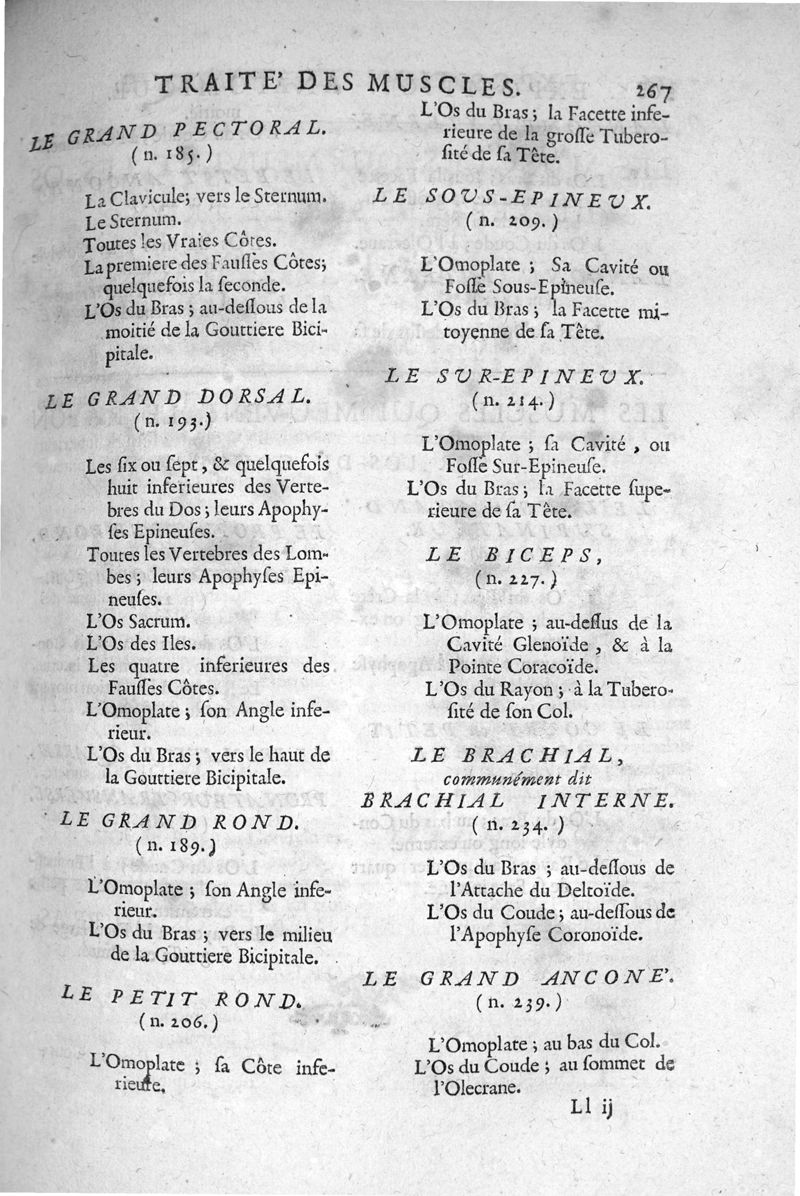 TRAITE' DES MUSCLES. 267
LE GRAND PECTORAL.
( n. 185. )
La Clavicule; vers le Sternum.
Le Sternum.
Toutes les Vraies Côtes.
La premiere des Fauſſes Côtes;
quelquefois la ſeconde.
L'Os du Bras ; au-deſſous de la
moitié de la Gouttiere Bici-
pitale.
LE GRAND DORSAL.
( n. 193.)
Les ſix ou ſept, & quelquefois
huit inferieures des Verte-
bres du Dos ; leurs Apophy-
ſes Epineuſes.
Toutes les Vertebres des Lom-
bes ; leurs Apophyſes Epi-
neuſes.
L'Os Sacrum.
L'Os des Iles.
Les quatre inferieures des
Fauſſes Côtes.
L'Omoplate ; ſon Angle infe-
rieur.
L'Os du Bras ; vers le haut de
la Gouttiere Bicipitale.
LE GRAND ROND.
( n. 189.)
L'Omoplate ; ſon Angle infe-
rieur.
L'Os du Bras ; vers le milieu
de la Gouttiere Bicipitale.
LE PETIT ROND.
( n. 206. )
L'Omoplate ; ſa Côte infe-
rieure.
L'Os du Bras ; la Facette infe-
rieure de la groſſe Tubero-
ſité de ſa Tête.
LE SOVS-EPINEVX.
( n. 209. )
L'Omoplate ; Sa Cavité ou
Foſſe Sous-Epineuſe.
L'Os du Bras ; la Facette mi-
toyenne de ſa Tête.
LE SVR-EPINEVX.
( n. 214. )
L'Omoplate ; ſa Cavité , ou
Foſſe Sur-Epineuſe.
L'Os du Bras ; la Facette ſupe-
rieure de ſa Tête.
LE BICEPS,
( n. 227. )
L'Omoplate ; au-deſſus de la
Cavité Glenoïde , & à la
Pointe Coracoïde.
L'Os du Rayon ; à la Tubero-
ſité de ſon Col.
LE BRACHIAL,
communément dit
BRACHIAL INTERNE.
( n. 234. )
L'Os du Bras ; au-deſſous de
l'Attache du Deltoïde.
L'Os du Coude ; au-deſſous de
l'Apophyſe Coronoïde.
LE GRAND ANCONE'.
( n. 239. )
L'Omoplate ; au bas du Col.
L'Os du Coude ; au ſommet de
l'Olecrane.
Ll ij